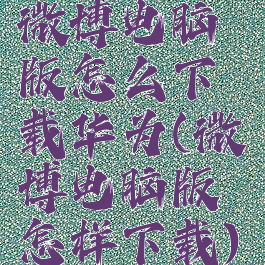 微博电脑
版怎么下
载华为(微
博电脑版
怎样下载)